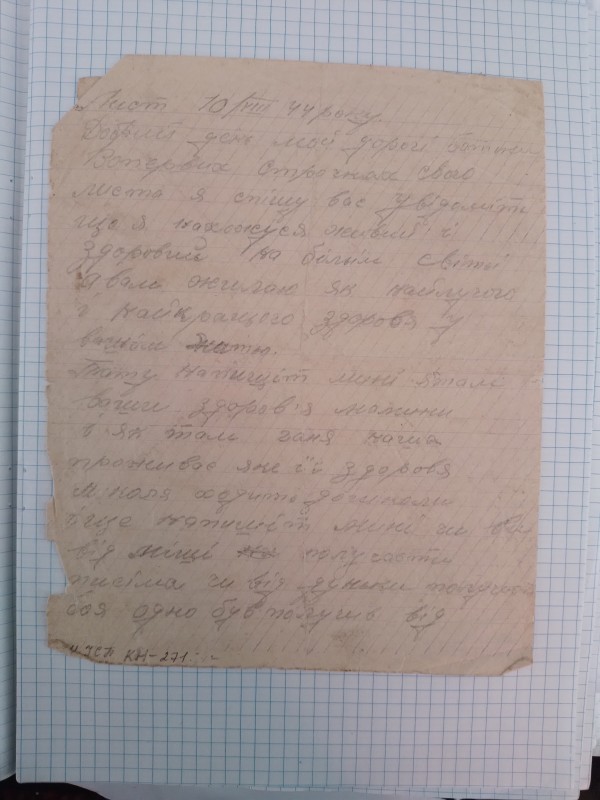 Лист 10/VIII 44 року.
Добрий день мої дорогі батьки
Воперших строчках свого
листа я спішу вас увідоміть
що я нахожуся живий і
здоровий на білім світі
я вам желаю як найлучого
і найкращого здоровя у
вашом житю.
Тату напишіт мині як там
ваши здоров'я мамини
і як там ганя наша
проживає яке її здоровя
ходить до школи
іще напишіт мині чи ви
від міші получаєти
письма чи від дуньки получає
бо я одно був получив від
КН-271